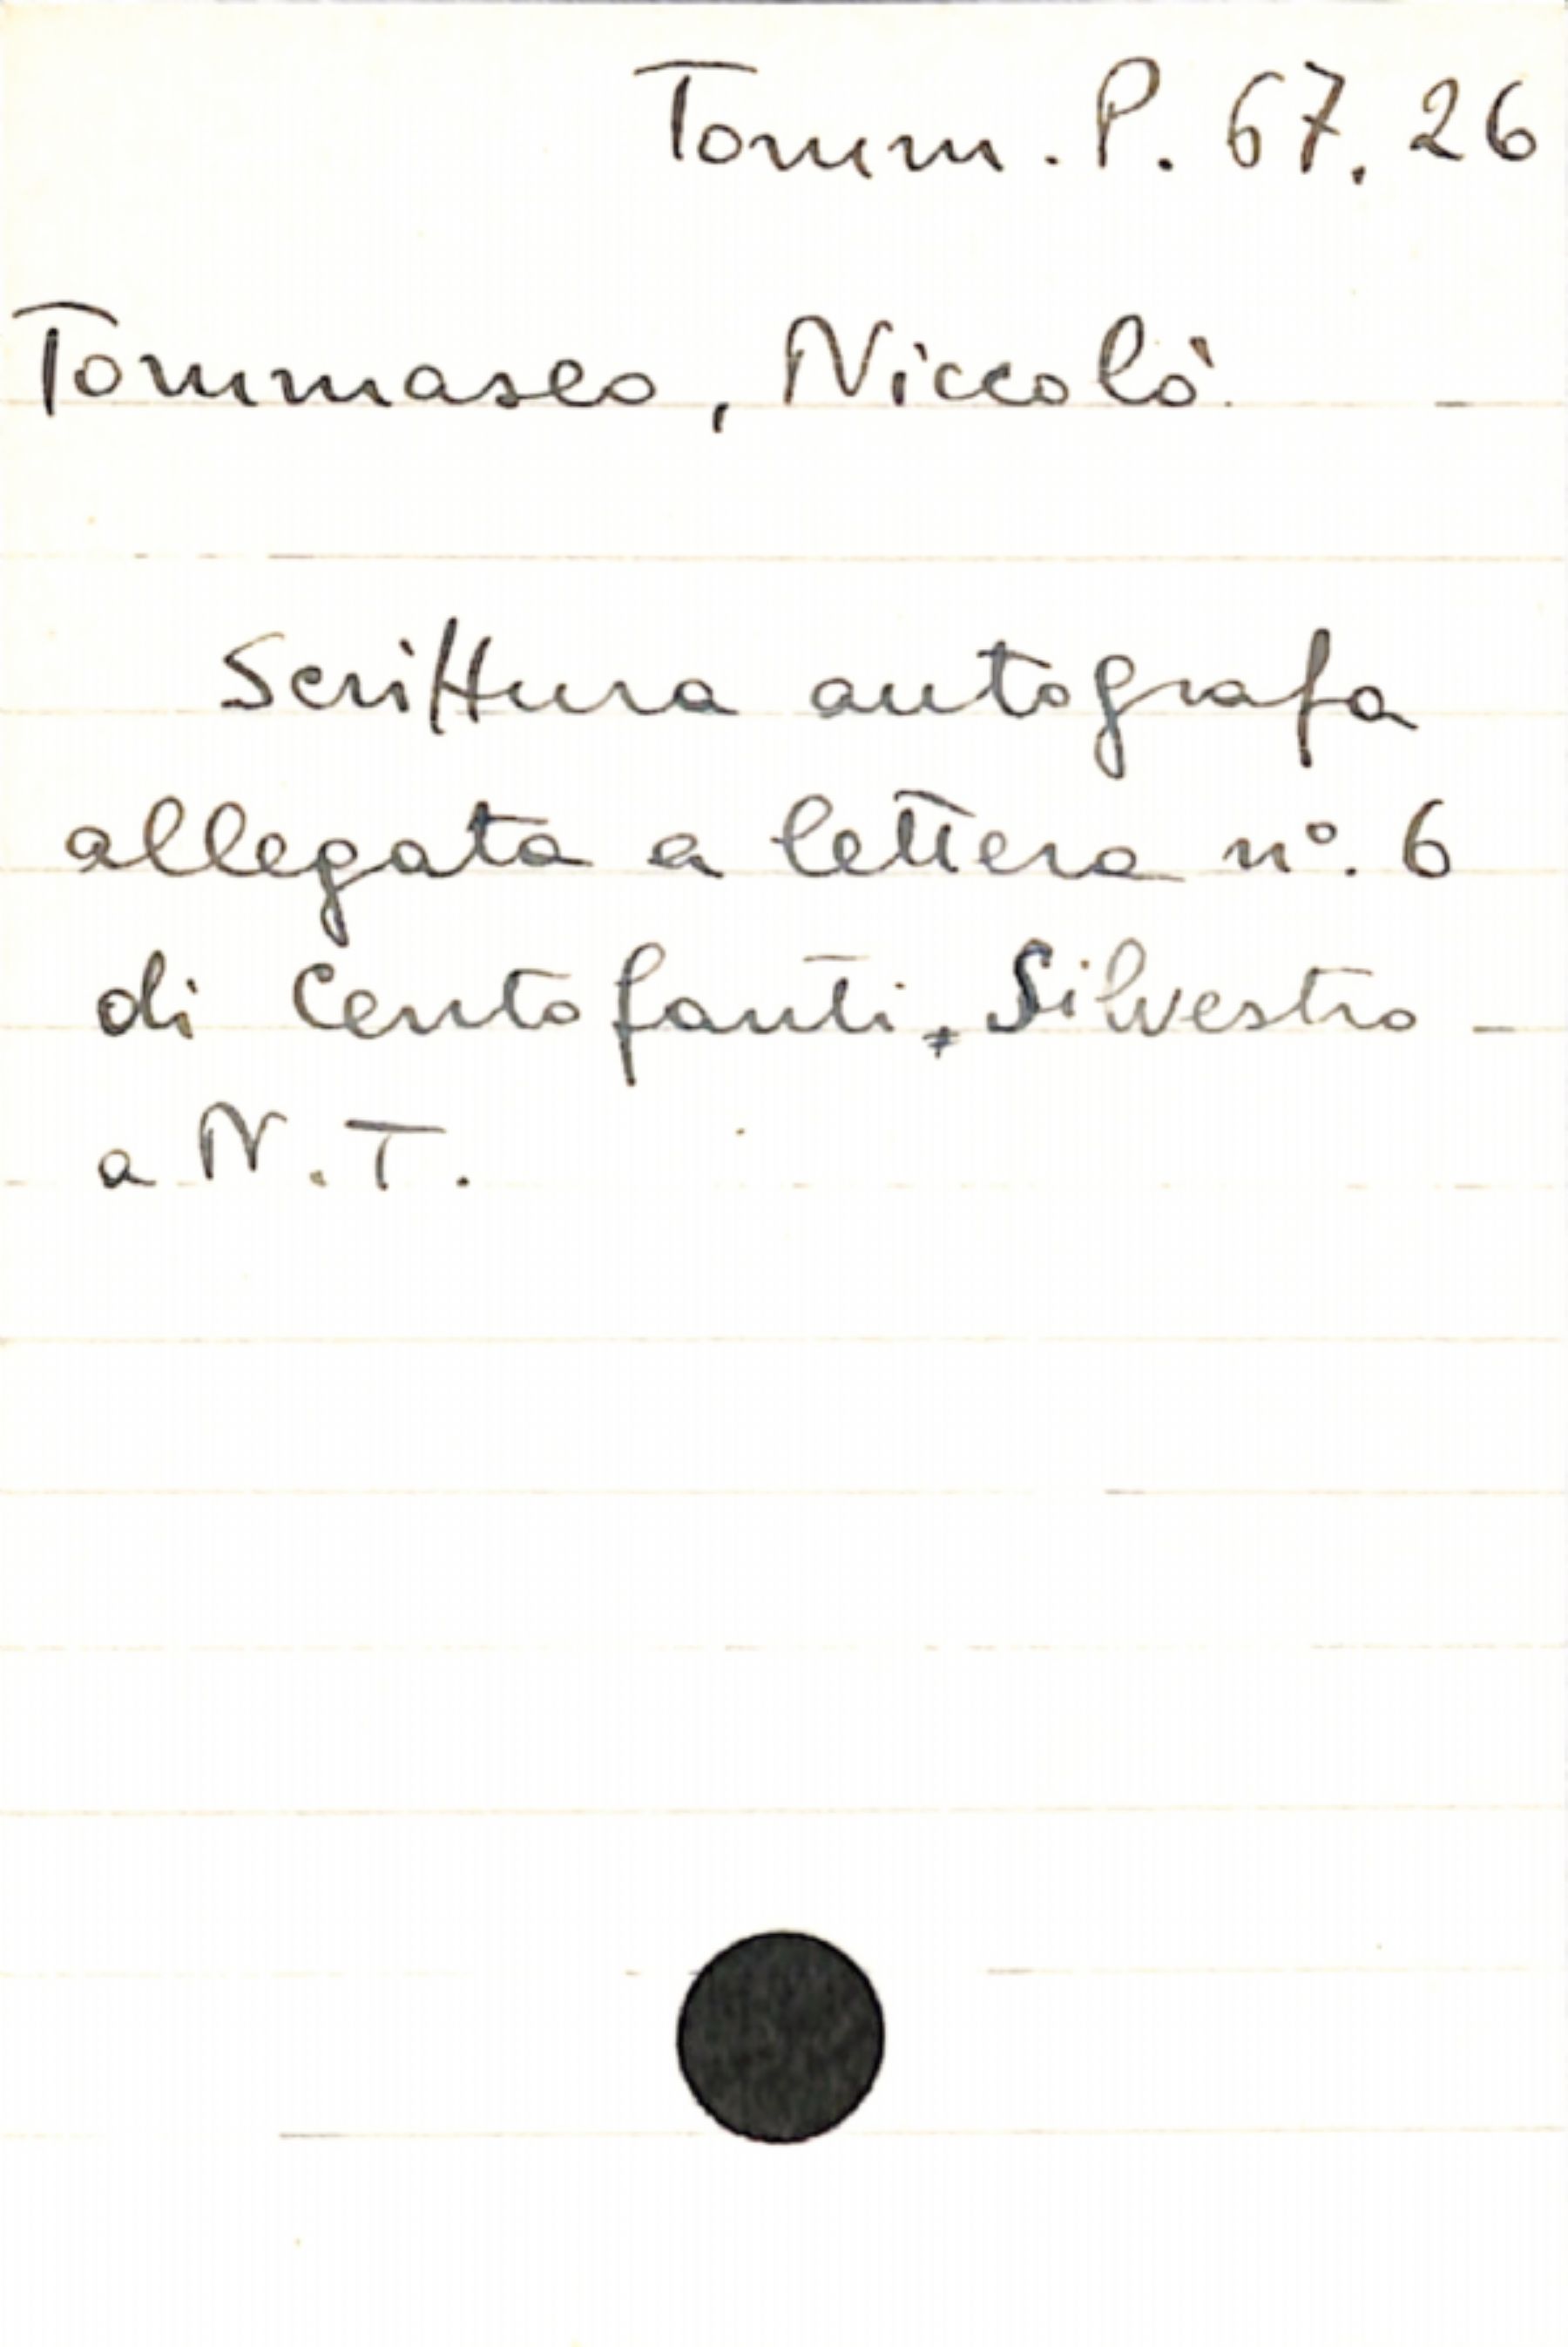 Tomm. P. 67. 26
Tommaseo, Niccolò
Scrittura autografa
allegata a lettera n°. 6
di Centofanti, Silvestro
a N. T.